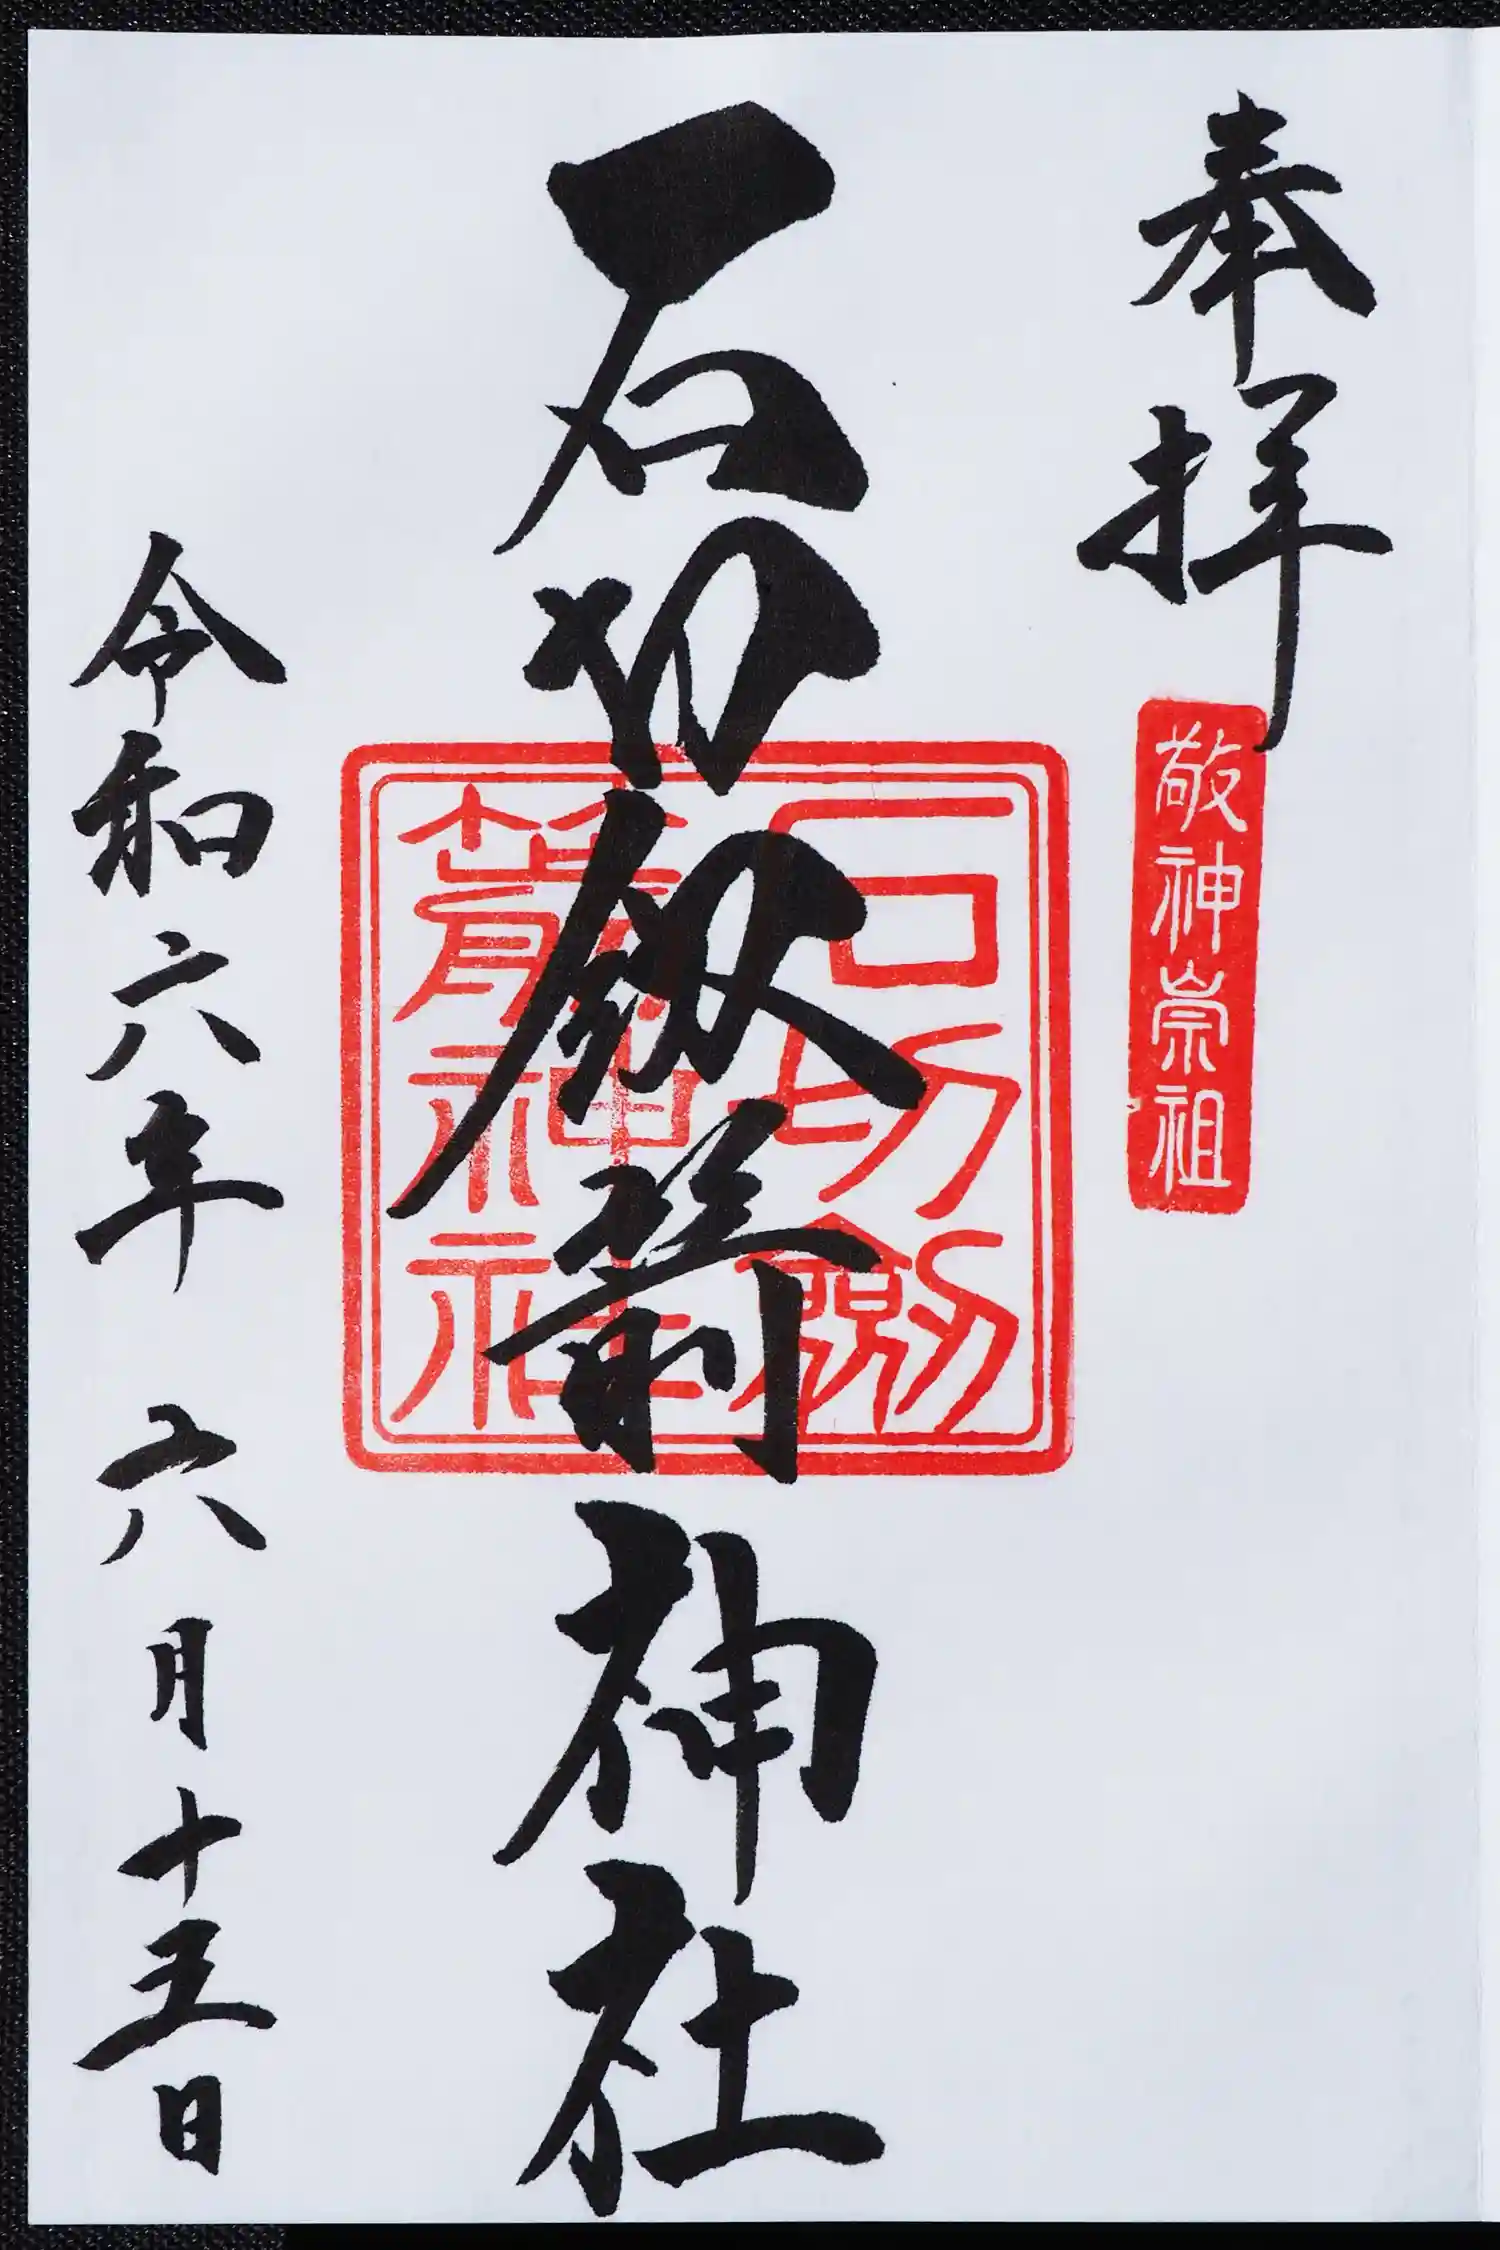 奉拝
敬神崇祖
石切劔箭神社
石切劔
箭神社
令和六年六月十五日